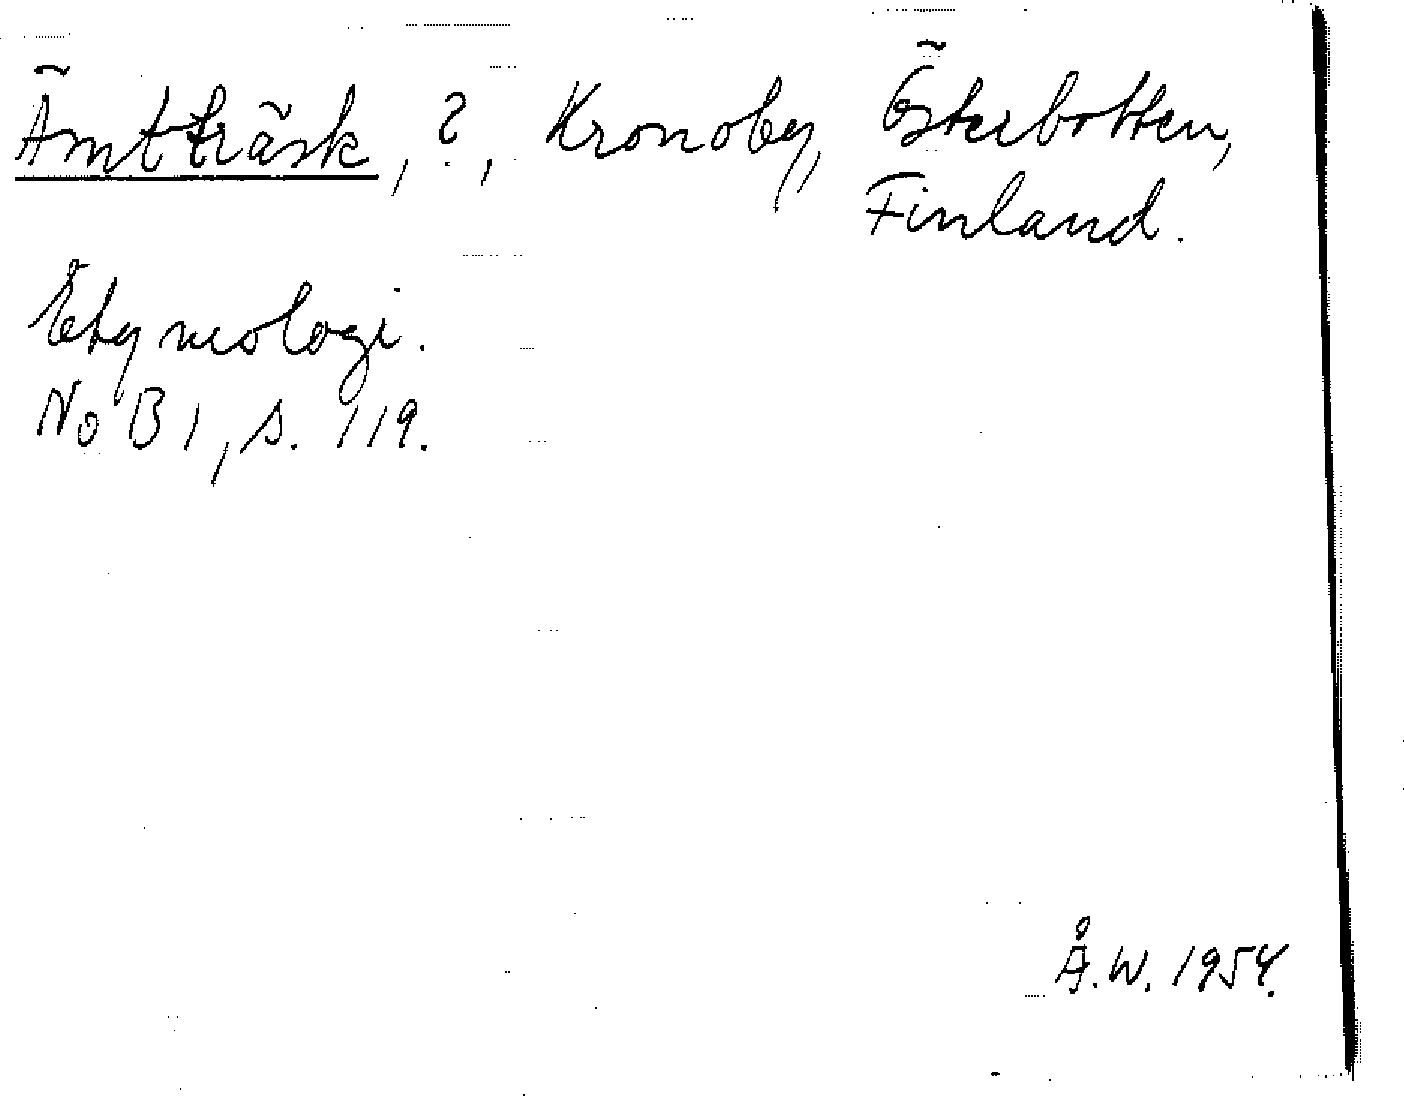 Ämtträsk, ?, Kronoby, Österbotten,
Finland.
Etymologi.
NoB 1, s. 119.
Å.W. 1954.